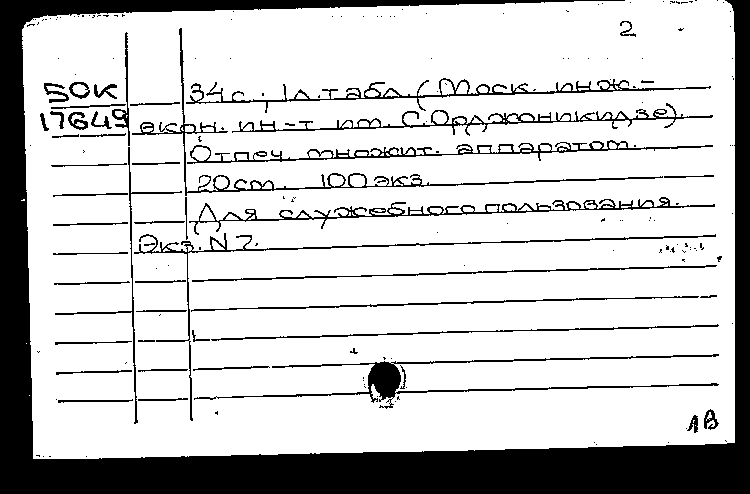 2
БОК 34 с.; 1 л. табл. (Моск. инж.-
17649 экон. ин-т им. С. Орджоникидзе).
Отпеч. множит. аппаратом.
20 см. 100 экз.
Для служебного пользования.
Экз. N 7.
1В